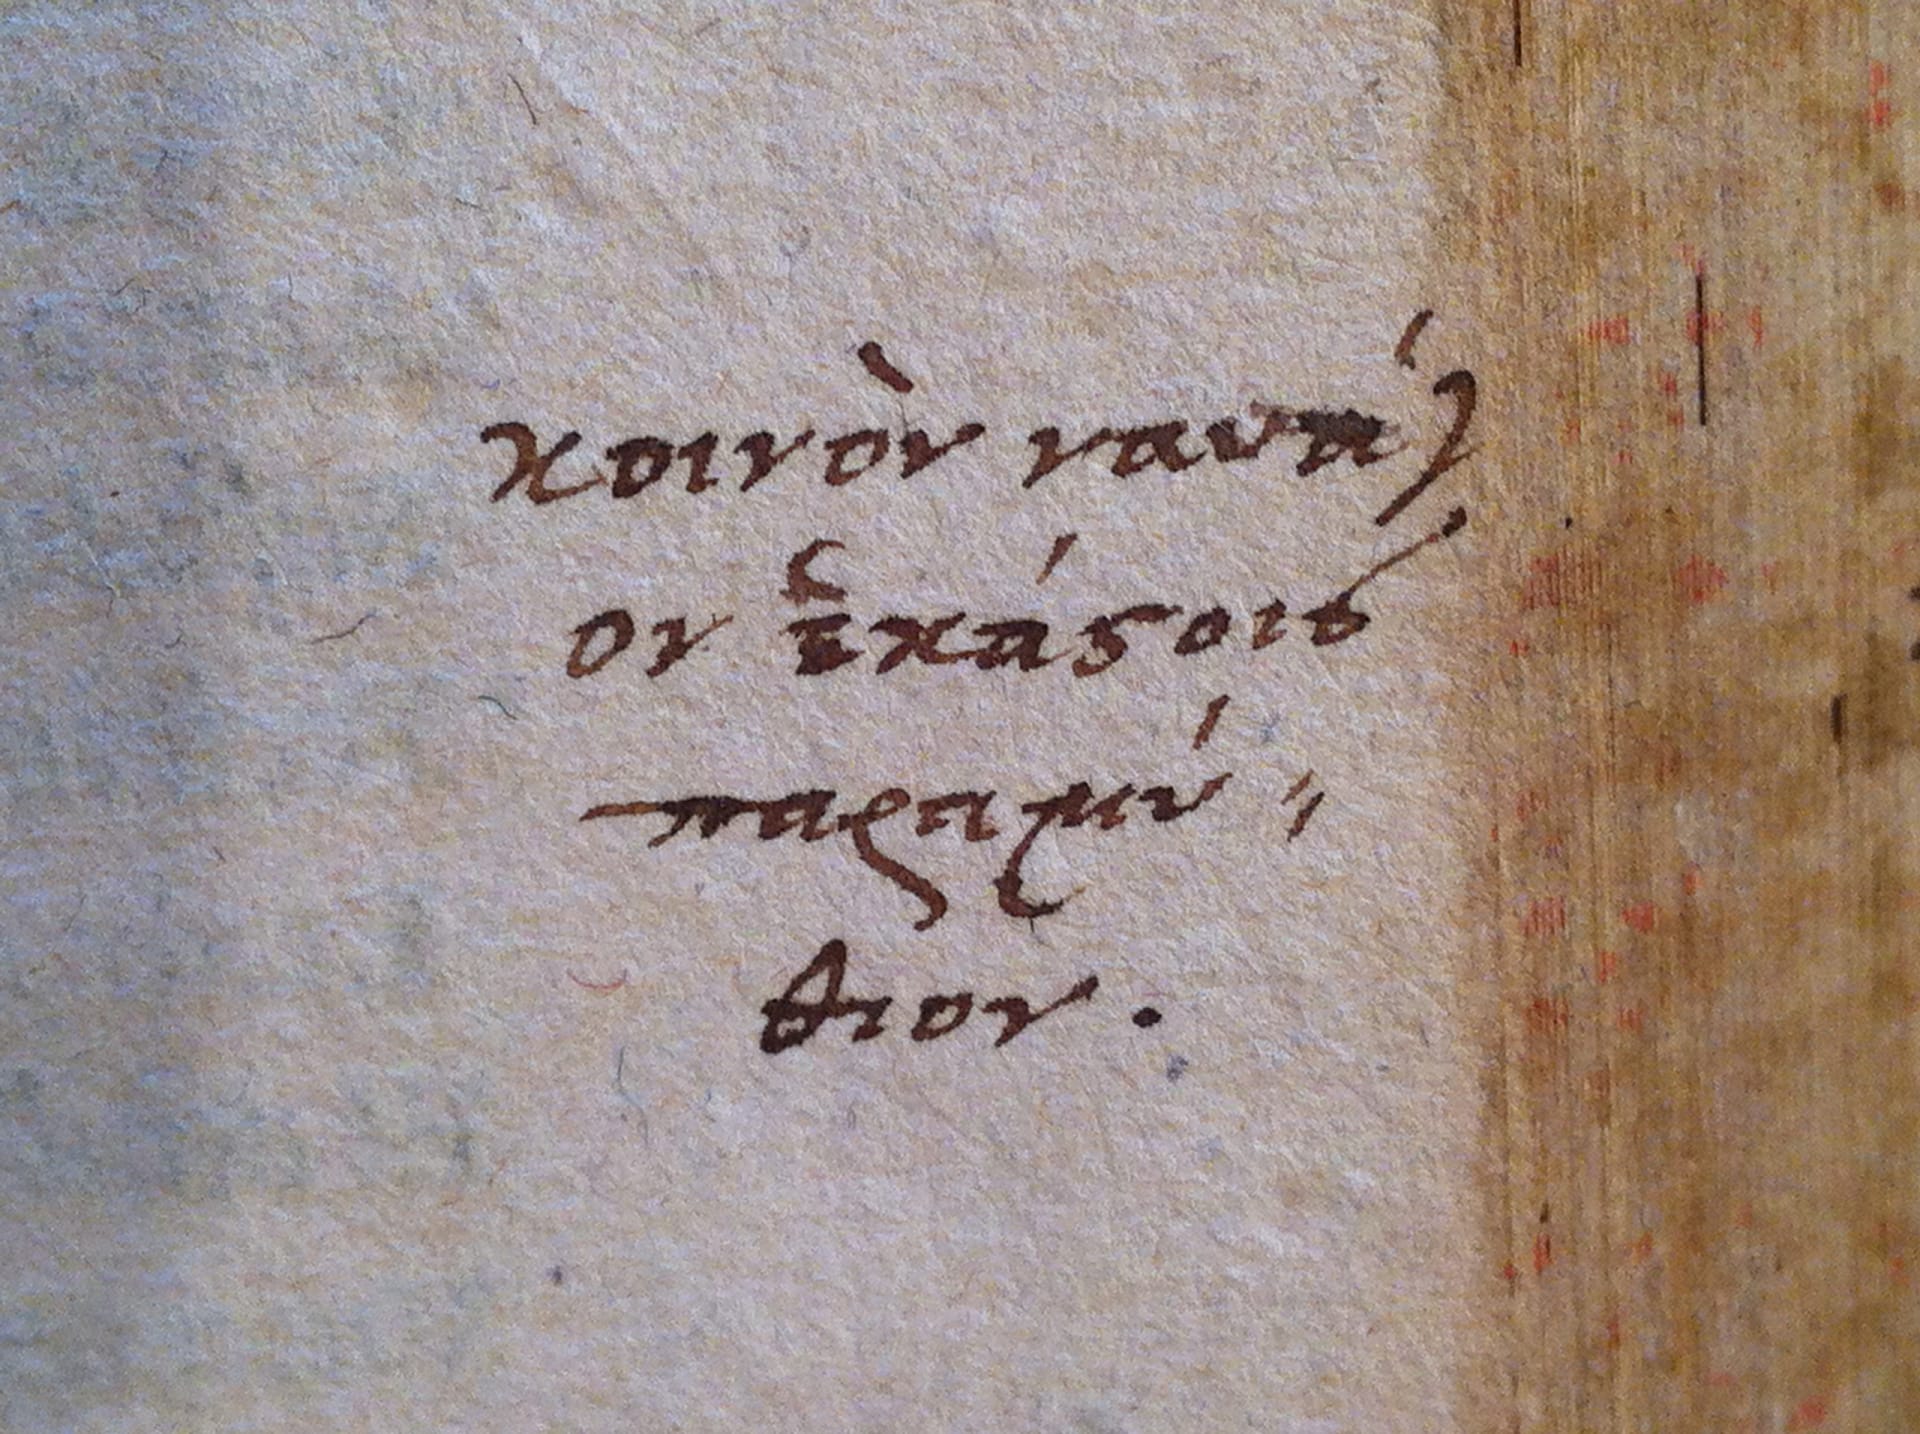 κοινὸν ναυά/
ον ἑκάϛοις
παραμύ,,
θιον.